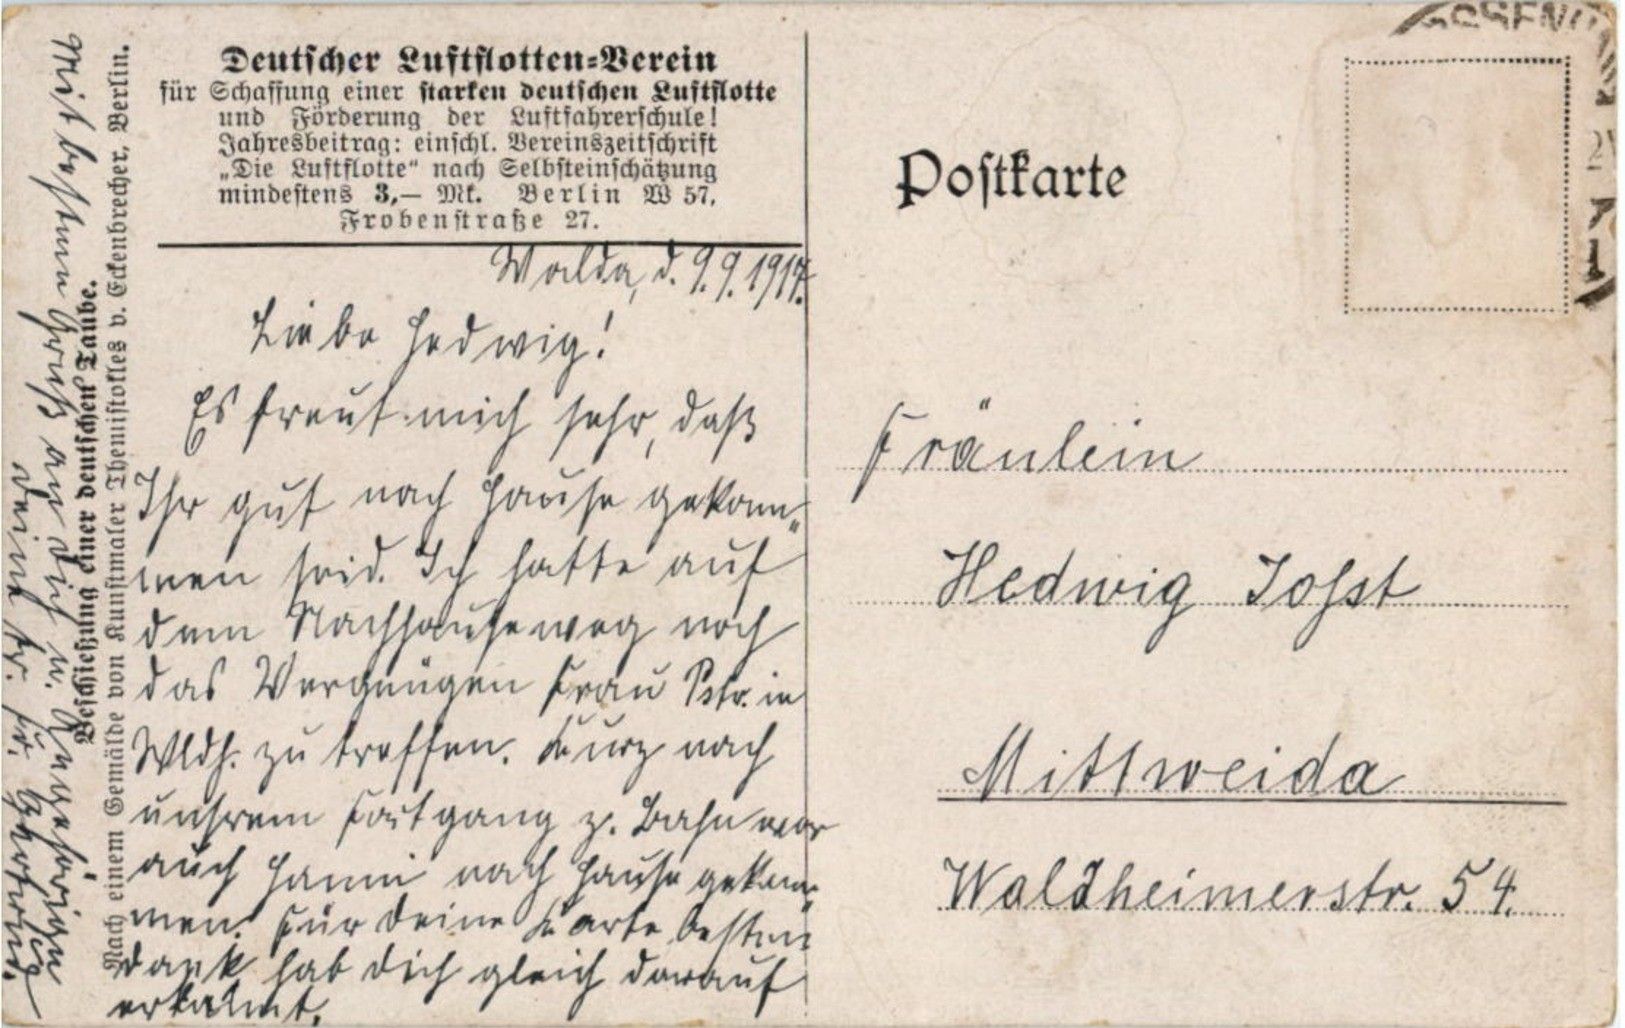 Deutscher Luftflotten=Verein
für Schaffung einer starken deutschen Luftflotte
und Förderung der Luftfahrerschule!
Jahresbeitrag: einschl. Vereinszeitschrift
„Die Luftflotte“ nach Selbsteinschätzung
mindestens 3,— Mk. Berlin W 57,
Frobenstraße 27.
Walda, d. 9.9.1917.
Liebe Hedwig!
Es freut mich sehr, daß
Ihr gut nach Hause gekom„
men seid. Ich hatte auf
dem Nachhauseweg noch
das Vergnügen Frau Pstr. in
Wldh. zu treffen. Kurz nach
unsrem Fortgang z. Bahn war
auch Hanni nach Hause gekom„
men. Für Deine Karte besten
Dank hab Dich gleich darauf
erkannt.
Mit besten Gruß an Dich u. Angehörigen
Deine tr. Fr.
Beschießung einer deutschen Taube.
Nach einem Gemälde von Kunstmaler Themistokles v. Eckenbrecher, Berlin.
Postkarte
Fräulein
Hedwig Johst
Mittweida
Waldheimerstr. 54.